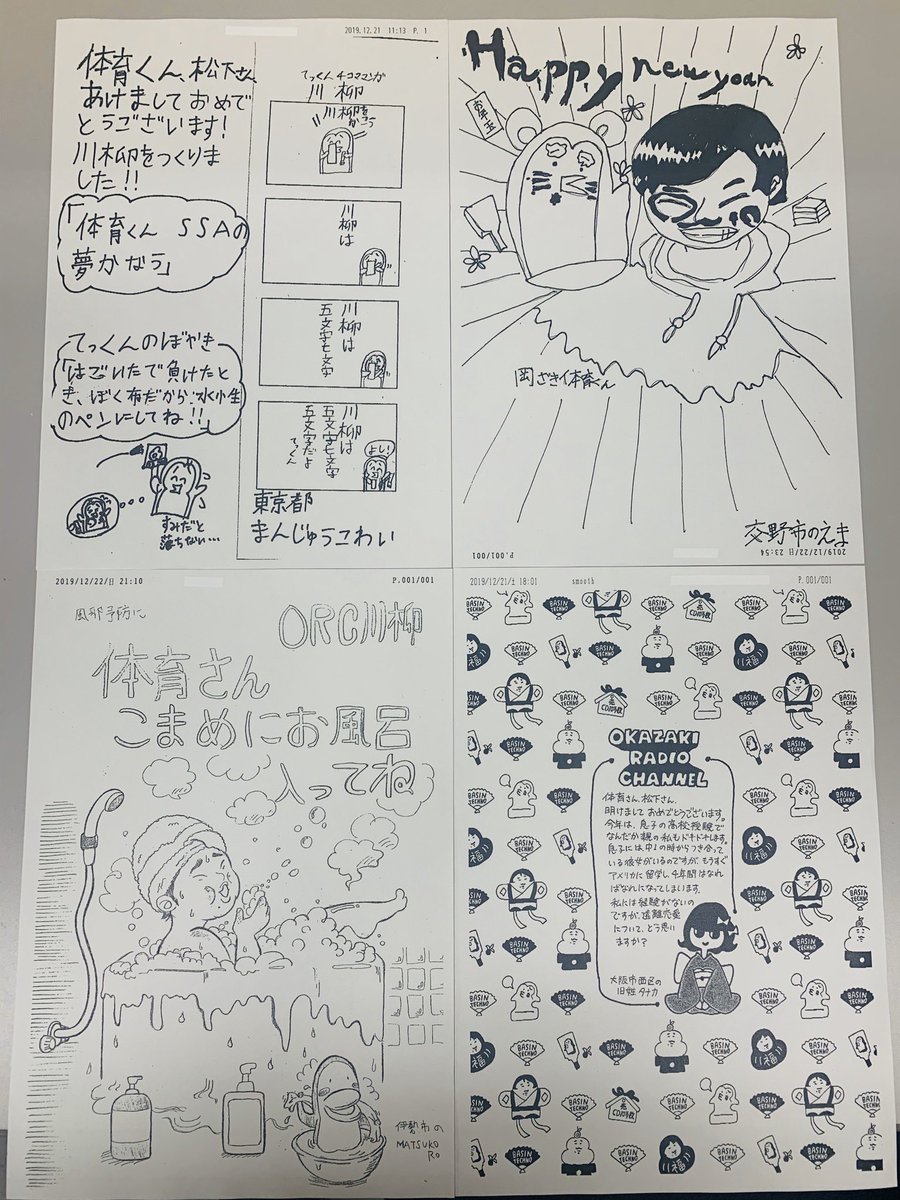 2019.12.21 11:13 P. 1
体育くん、松下さん
あけまして おめで
とうございます!
川柳をつくりま
した!!
「体育くん SSAの
夢かなう」
てっくんのぼやき
「はごいたで負けたと
き、ぼく布だから、水性
のペンにしてね!!」
すみだと
落ちない…
てっくん4コママンガ
川柳
川柳を
かこう
川柳は
川柳は
五文字七文字
川柳は
五文字七文字
五文字だよ
てっくん
よし!
東京都
まんじゅうこわい
Happy new year
お年玉
岡ざき体育くん
交野市のえま
2019/12/22/日 23:54
P.001/001
2019/12/22/日 21:10
P.001/001
風邪予防に
ORC川柳
体育さん
こまめにお風呂
入ってね
伊勢市の
MATSUKO
RO
2019/12/21/土 18:01
smooth
P.001/001
BASIN
TECHNO
福
OKAZAKI
RADIO
CHANNEL
体育さん、松下さん、
明けまして おめでとうございます。
今年は、息子の高校受験で
なんだか親の私もドキドキします。
息子には中1の時からつき合って
いる彼女がいるのですが、もうすぐ
アメリカに留学し、4年間はなれ
ばなれになってしまいます。
私には経験がない
のですが、遠距離恋愛
について、どう思い
ますか?
大阪市西区の
旧姓タナカ